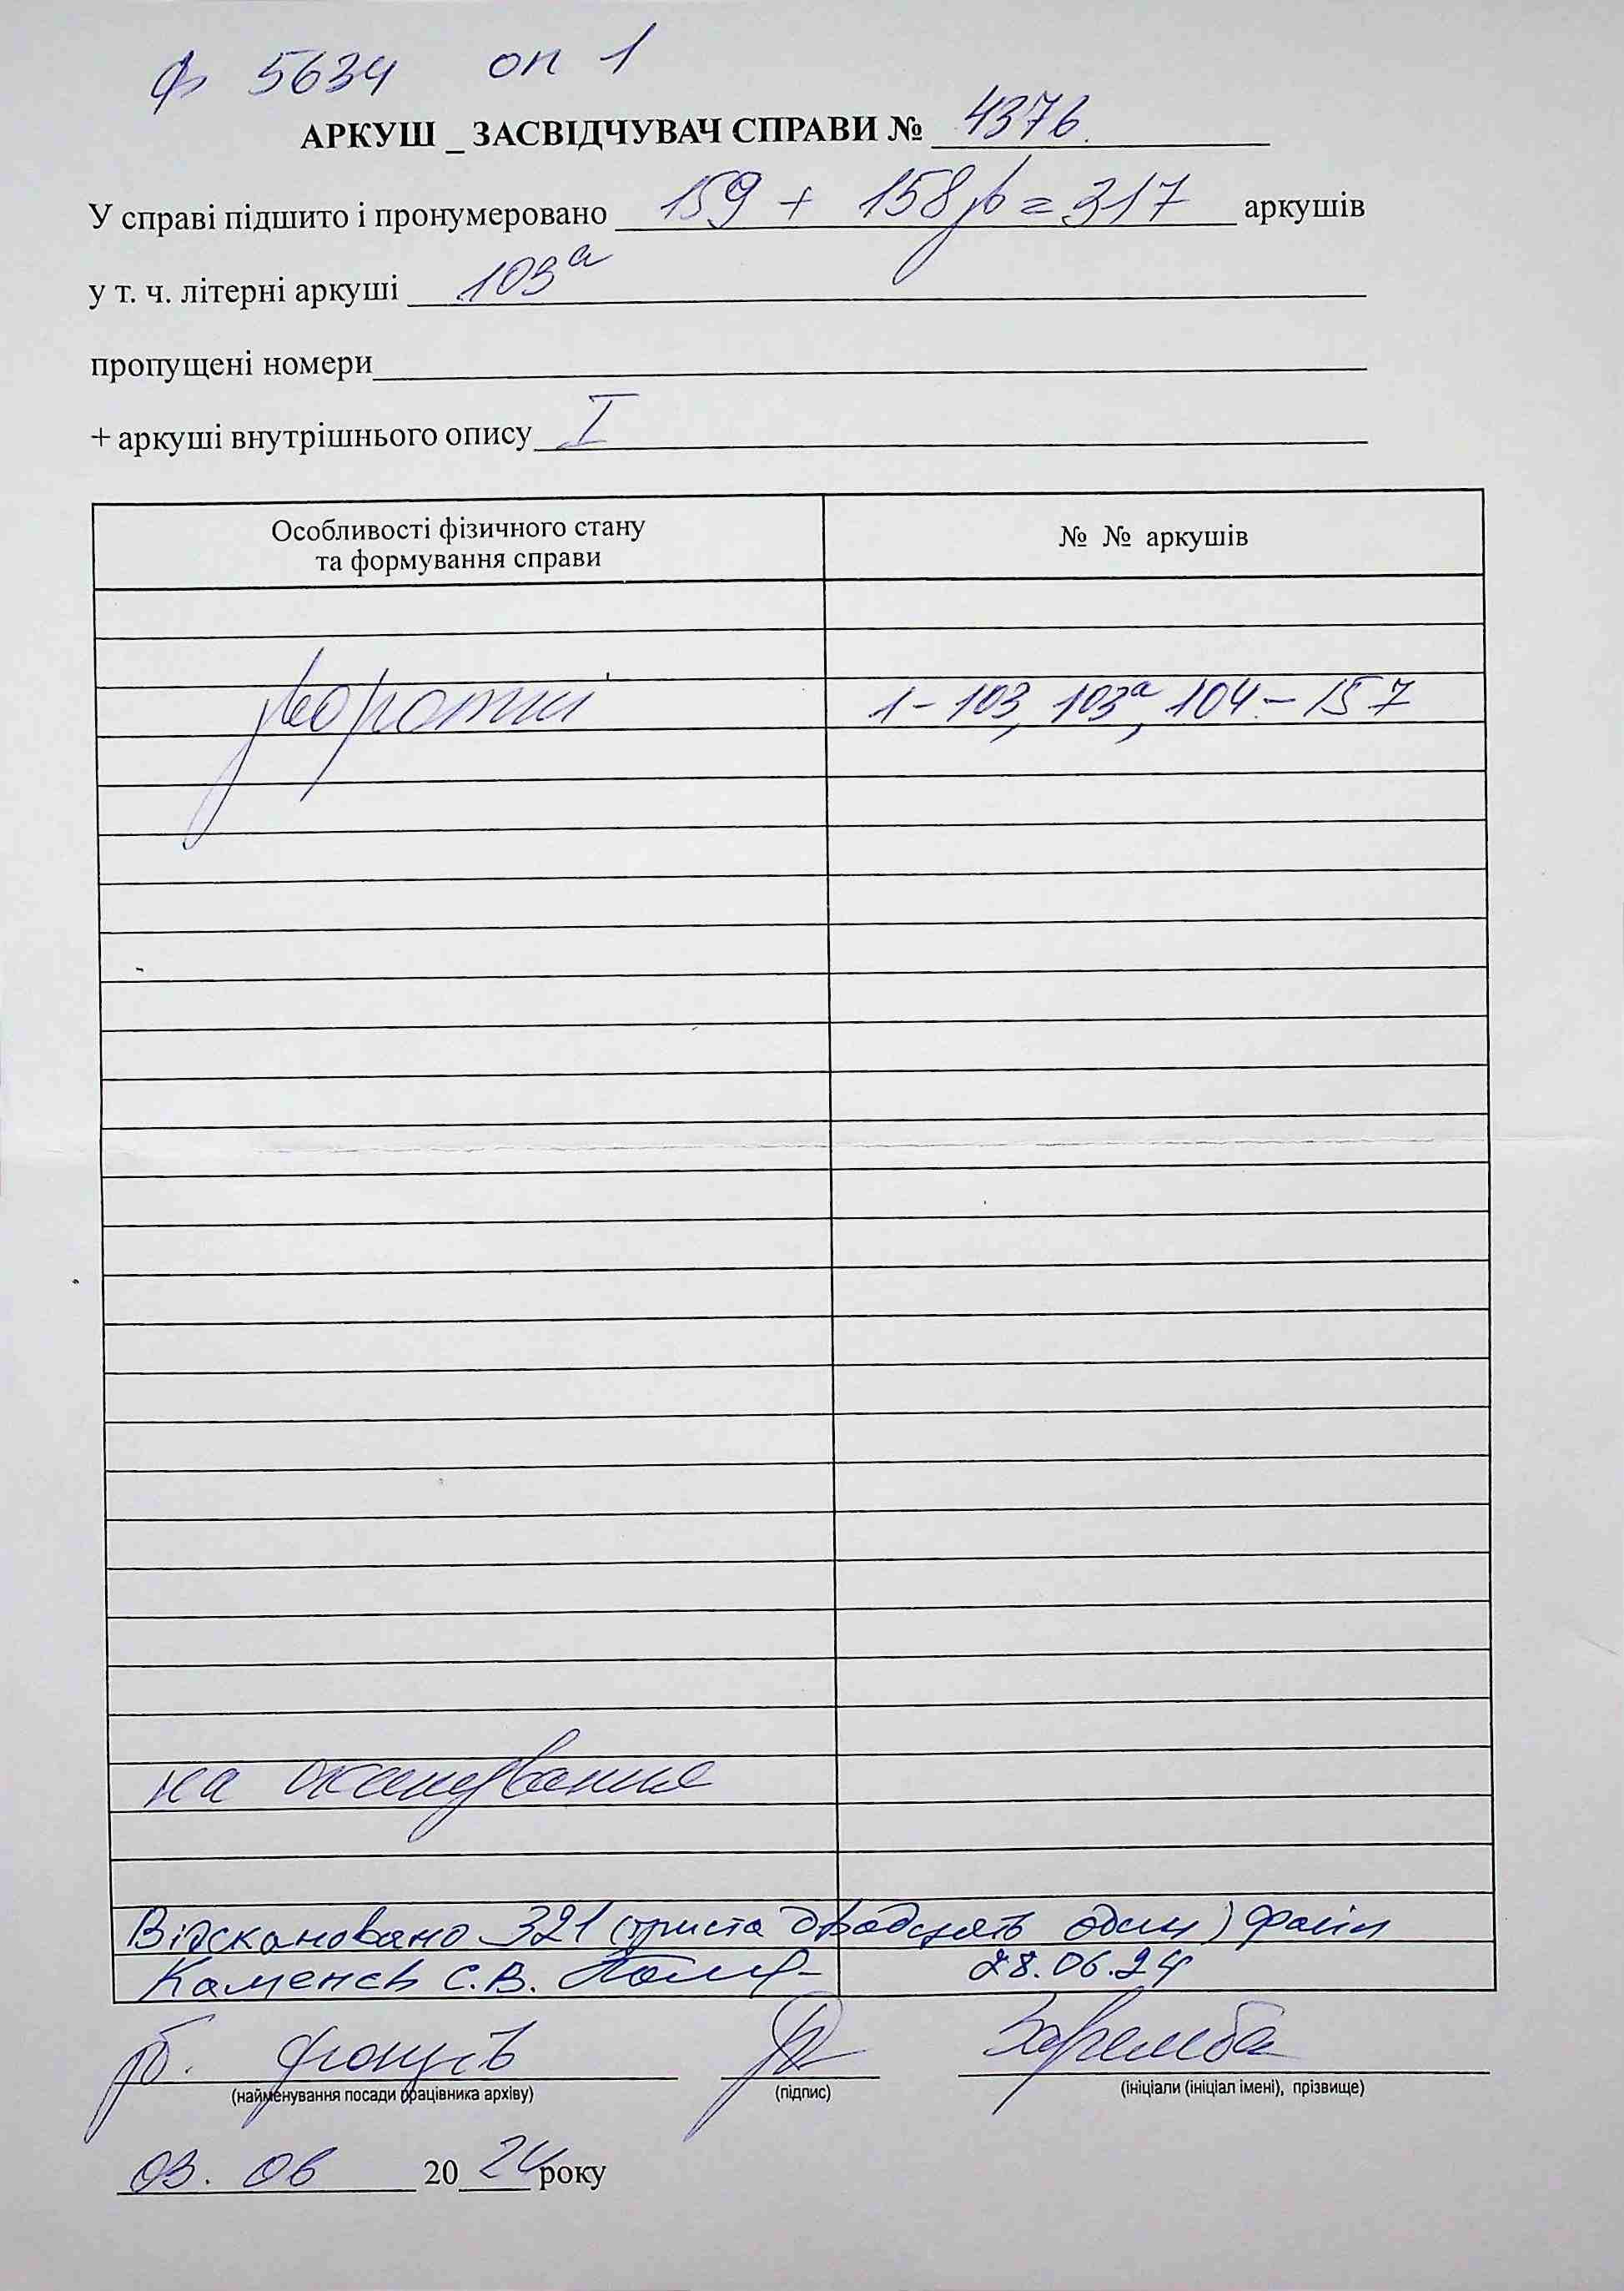 ф 5634 оп 1
АРКУШ _ ЗАСВІДЧУВАЧ СПРАВИ № 4376
У справі підшито і пронумеровано 159 + 158 зв = 317 аркушів
у т. ч. літерні аркуші 103а
пропущені номери
+ аркуші внутрішнього опису I
Особливості фізичного стану
та формування справи
№ № аркушів
звороти 1-103, 103а, 104-157
на сканування
Відскановано 321 (триста двадцять один) файл
Каменєв С.В. 28.06.24
зб. фондів Заремба
(найменування посади працівника архіву) (підпис) (ініціали (ініціал імені), прізвище)
03. 06 2024 року